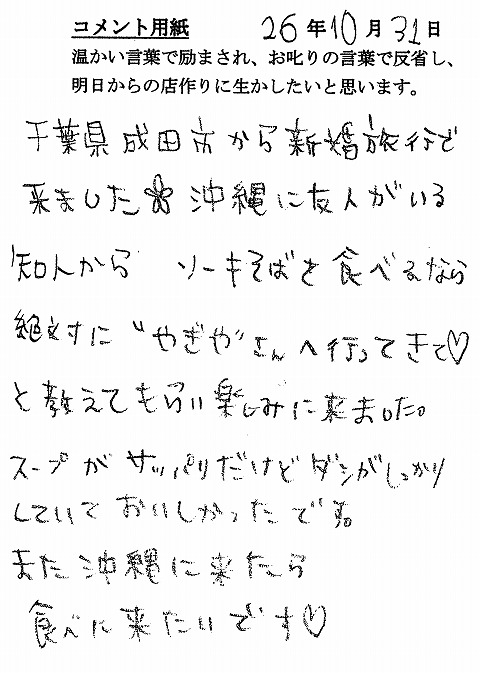 コメント用紙 26年10月31日
温かい言葉で励まされ、お叱りの言葉で反省し、
明日からの店作りに生かしたいと思います。
千葉県成田市から新婚旅行で
来ました 沖縄に友人がいる
知人から ソーキそばを食べるなら
絶対に“やぎや”さんへ行ってきて♡
と教えてもらい楽しみに来ました。
スープがサッパリだけどダシがしっかり
していておいしかったです。
また沖縄に来たら
食べに来たいです♡